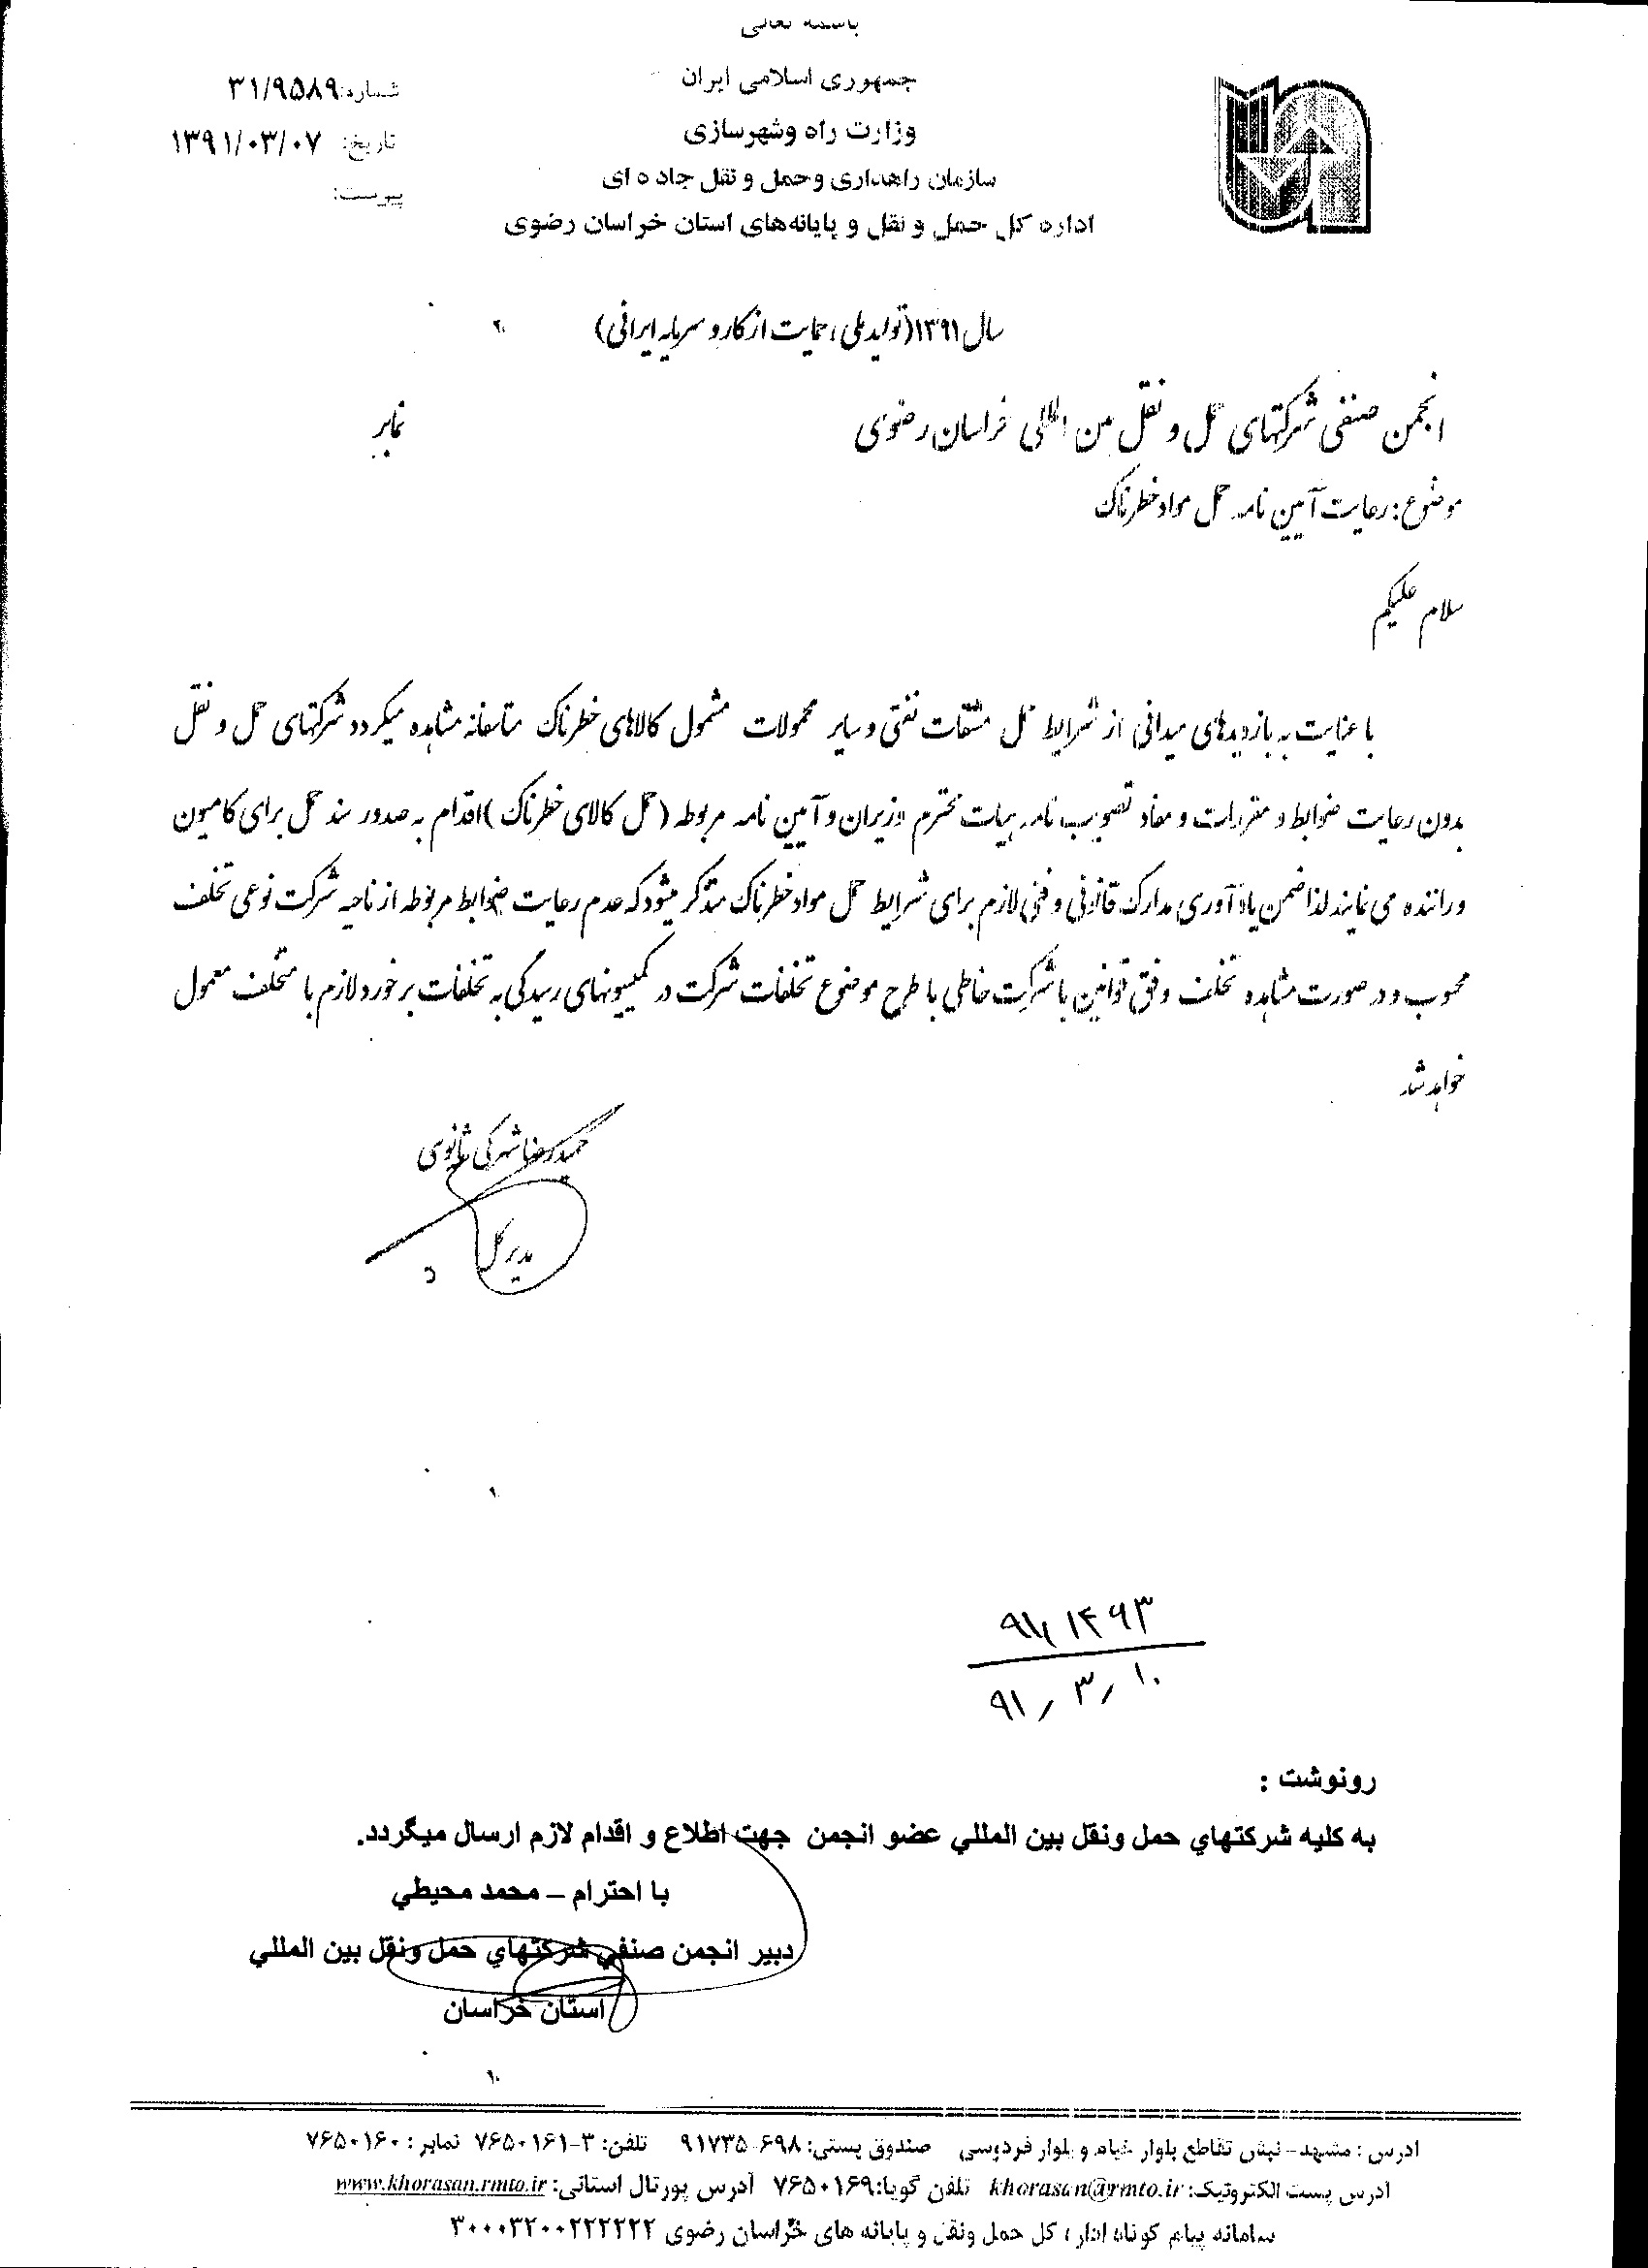 باسمه تعالی
جمهوری اسلامی ایران
وزارت راه وشهرسازی
سازمان راهداری وحمل و نقل جاده ای
اداره کل حمل و نقل و پایانه‌های استان خراسان رضوی
شماره: ۳۱/۹۵۸۹
تاریخ: ۱۳۹۱/۰۳/۰۷
پیوست:
سال ۱۳۹۱(تولید ملی، حمایت از کار و سرمایه ایرانی)
انجمن صنفی شرکتهای حمل و نقل بین المللی خراسان رضوی
نمابر
موضوع: رعایت آیین نامه حمل مواد خطرناک
سلام علیکم
با عنایت به بازدیدهای میدانی از شرایط حمل مشتقات نفتی و سایر محمولات مشمول کالاهای خطرناک متاسفانه مشاهده میگردد شرکتهای حمل و نقل
بدون رعایت ضوابط و مقررات و مفاد تصویب نامه هیات محترم وزیران و آیین نامه مربوطه (حمل کالای خطرناک) اقدام به صدور سند حمل برای کامیون
و راننده می نمایند لذا ضمن یادآوری مدارک قانونی و فنی لازم برای شرایط حمل مواد خطرناک متذکر میشود که عدم رعایت ضوابط مربوطه از ناحیه شرکت نوعی تخلف
محسوب و در صورت مشاهده تخلف وفق قوانین با شرکت خاطی با طرح موضوع تخلفات شرکت در کمیسیونهای رسیدگی به تخلفات برخورد لازم با متخلف معمول
خواهد شد
حمیدرضا شهرکی ثانوی
مدیر کل
۹۱/۱۴۹۳
۹۱/۳/۱۰
رونوشت :
به کلیه شرکتهاي حمل ونقل بین المللي عضو انجمن جهت اطلاع و اقدام لازم ارسال میگردد.
با احترام – محمد محیطي
دبیر انجمن صنفي شرکتهاي حمل ونقل بین المللي
استان خراسان
ادرس : مشهد- نبش تقاطع بلوار خیام و بلوار فردوسی صندوق پستی: ۶۹۸-۹۱۷۳۵ تلفن: ۳-۷۶۵۰۱۶۱ نمابر: ۷۶۵۰۱۶۰
آدرس پست الکترونیک: khorasan@rmto.ir تلفن گویا: ۷۶۵۰۱۶۹ آدرس پورتال استانی: www.khorasan.rmto.ir
سامانه پیام کوتاه اداره کل حمل ونقل و پایانه های خراسان رضوی ۳۰۰۰۳۲۰۰۲۲۲۲۲۲